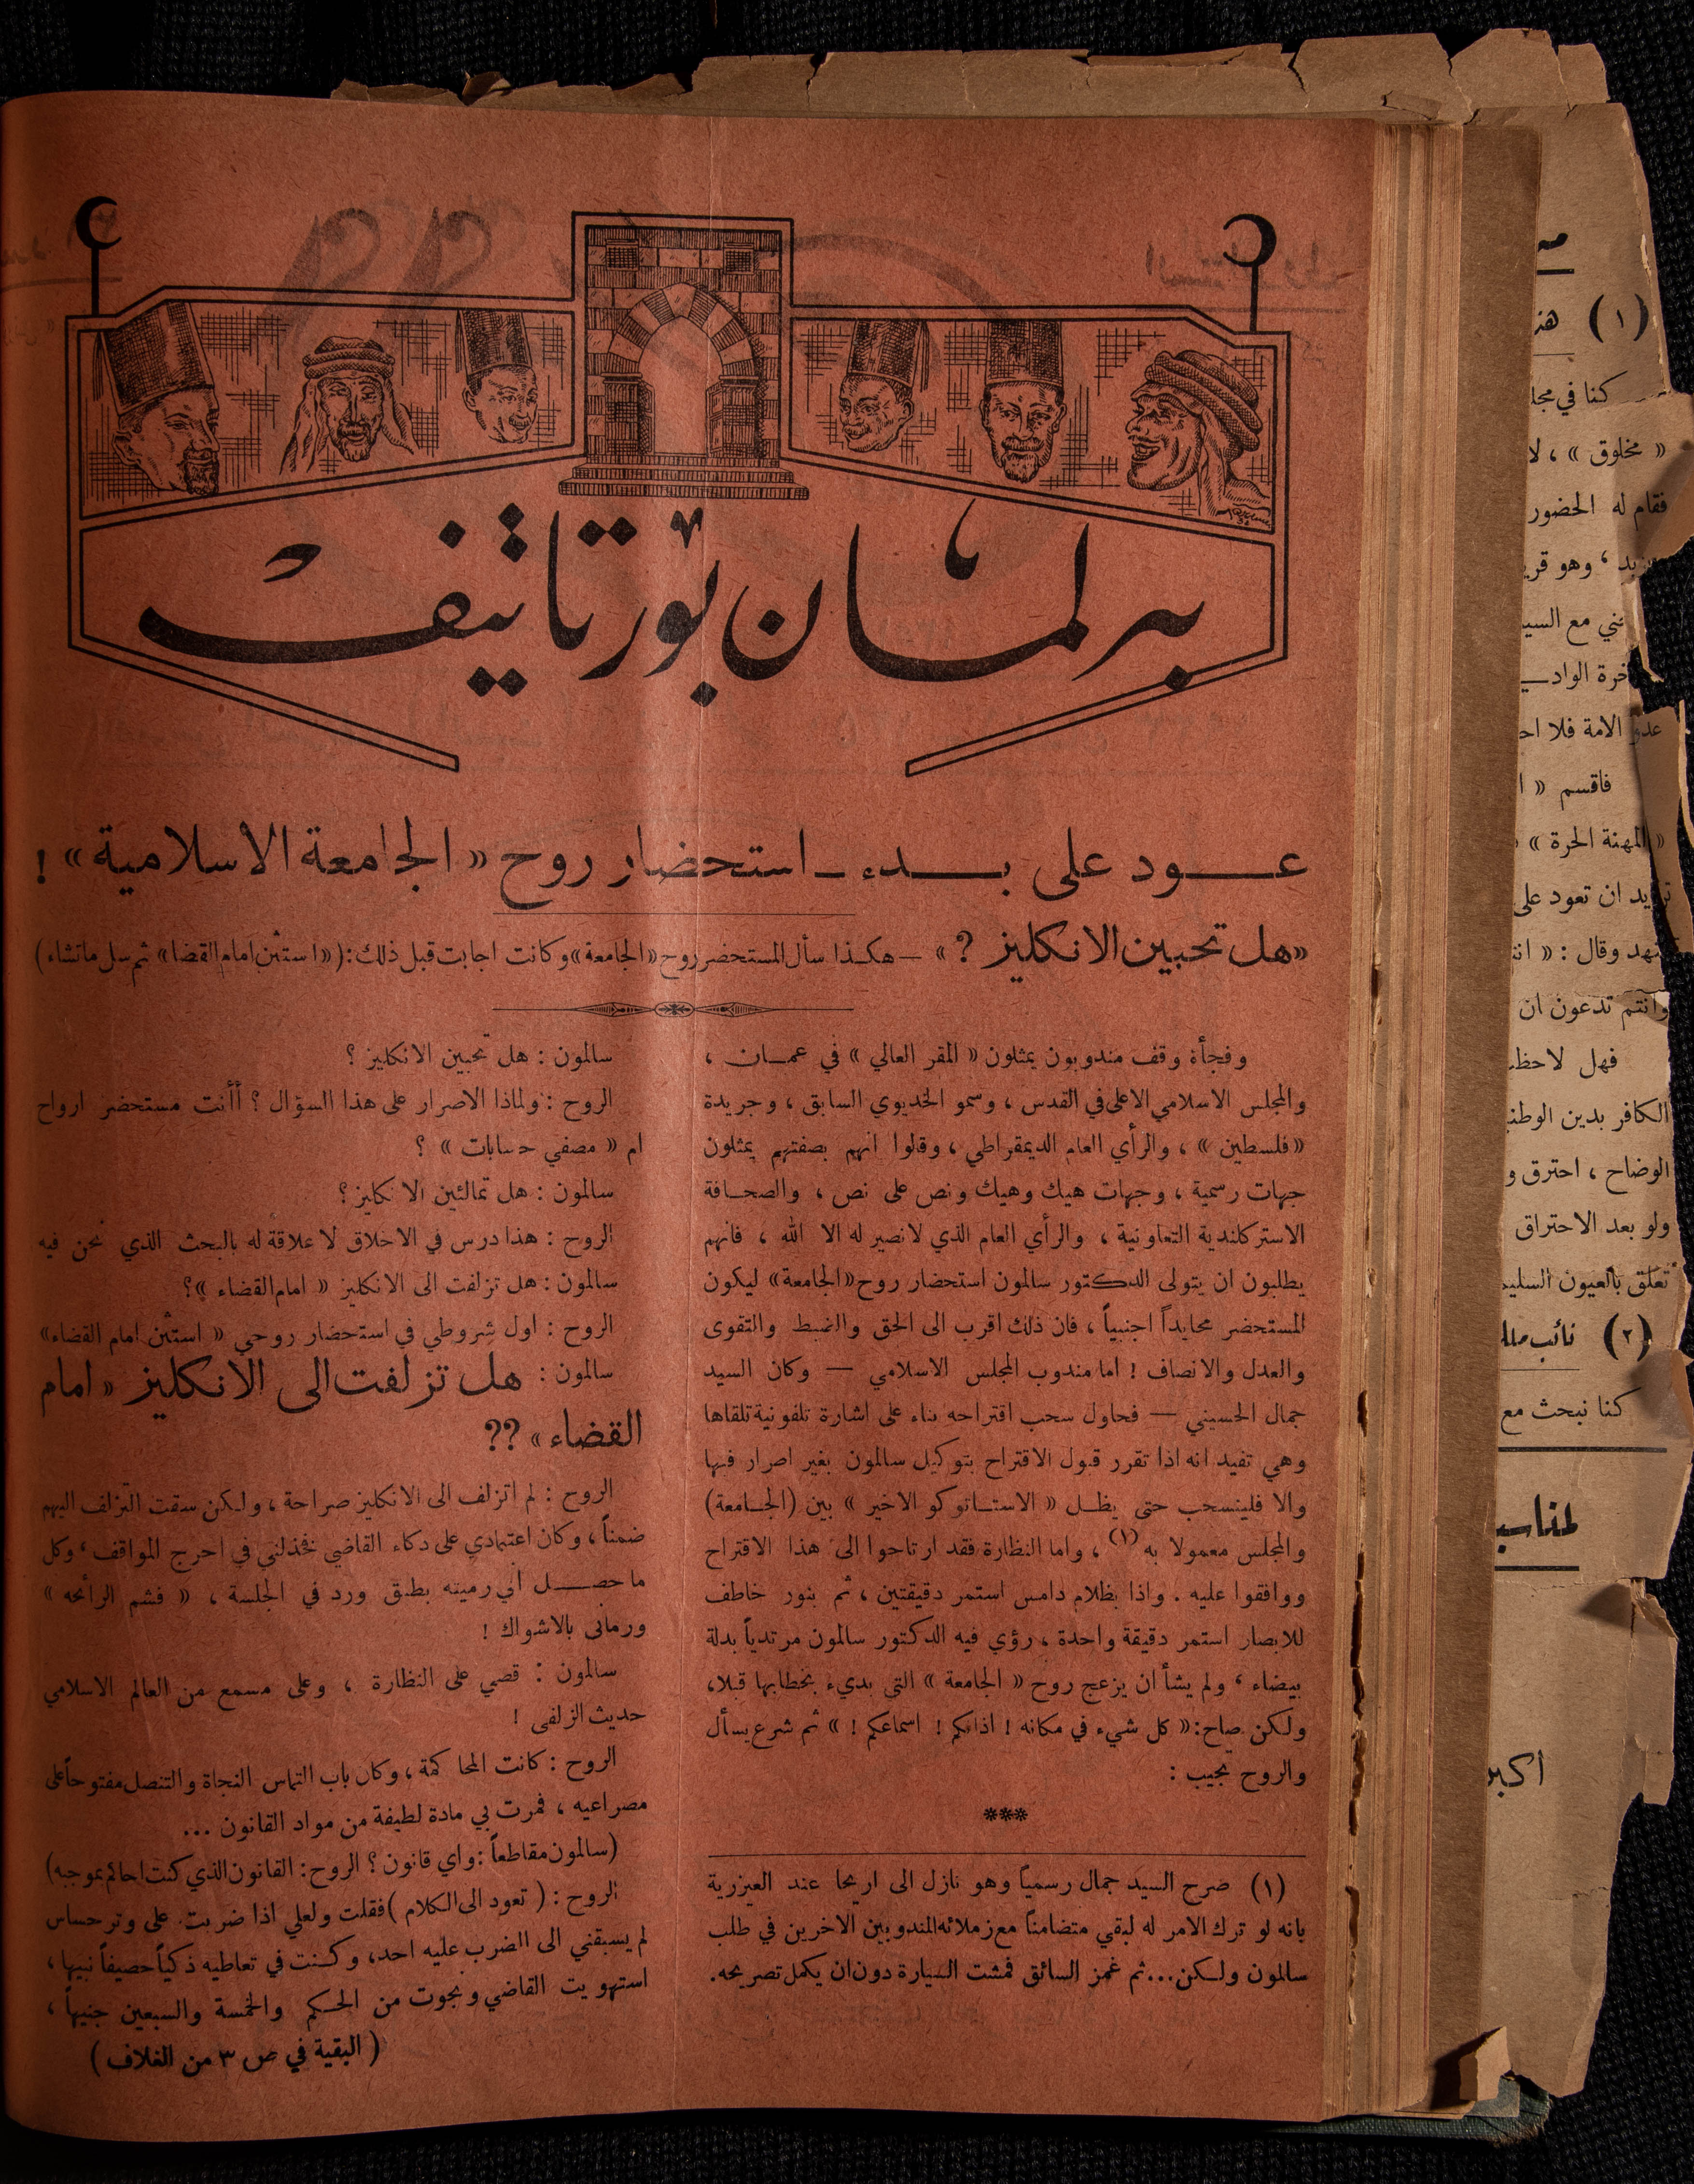 برلمان بورتاتيف
عود على بدء ـ استحضار روح « الجامعة الاسلامية » !
«هل تحبين الانكليز ؟» — هكذا سأل المستحضر روح «الجامعة» وكانت اجابت قبل ذلك : («استثن امام القضا» ثم سل ماتشاء)
وفجأة وقف مندوبون يمثلون « المقر العالي » في عمان ،
والمجلس الاسلامي الاعلى في القدس ، وسمو الخديوي السابق ، وجريدة
«فلسطين » ، والرأي العام الديمقراطي ، وقالوا انهم بصفتهم يمثلون
جهات رسمية ، وجهات هيك وهيك ونص على نص ، والصحافة
الاستركلندية التعاونية ، والرأي العام الذي لانصير له الا الله ، فانهم
يطلبون ان يتولى الدكتور سالمون استحضار روح «الجامعة» ليكون
المستحضر محايداً اجنبياً ، فان ذلك اقرب الى الحق والضبط والتقوى
والعدل والانصاف ! اما مندوب المجلس الاسلامي — وكان السيد
جمال الحسيني — فحاول سحب اقتراحه بناء على اشارة تلفونية تلقاها
وهي تفيد انه اذا تقرر قبول الاقتراح بتوكيل سالمون بغير اصرار فبها
والا فلينسحب حتى يظل « الاستاتوكو الاخير » بين (الجامعة)
والمجلس معمولا به (١) ، واما النظارة فقد ارتاحوا الى هذا الاقتراح
ووافقوا عليه . واذا بظلام دامس استمر دقيقتين ، ثم بنور خاطف
للابصار استمر دقيقة واحدة ، رؤي فيه الدكتور سالمون مرتدياً بدلة
بيضاء ، ولم يشأ ان يزعج روح « الجامعة » التي بديء بخطابها قبلا ،
ولكن صاح : « كل شيء في مكانه ! اذانكم ! اسماعكم ! » ثم شرع يسأل
والروح تجيب :
***
(١) صرح السيد جمال رسمياً وهو نازل الى اريحا عند العيزرية
بانه لو ترك الامر له لبقي متضامناً مع زملائه المندوبين الاخرين في طلب
سالمون ولكن... ثم غمز السائق فمشت السيارة دون ان يكمل تصريحه.
سالمون : هل تحبين الانكليز ؟
الروح : ولماذا الاصرار على هذا السؤال ؟ أأنت مستحضر ارواح
ام « مصفي حسابات » ؟
سالمون : هل تمالئين الانكليز ؟
الروح : هذا درس في الاخلاق لا علاقة له بالبحث الذي نحن فيه
سالمون : هل تزلفت الى الانكليز « امام القضاء »؟
الروح : اول شروطي في استحضار روحي « استثن امام القضاء»
سالمون : هل تزلفت الى الانكليز « امام
القضاء » ؟؟
الروح : لم اتزلف الى الانكليز صراحة ، ولكن سقت التزلف اليهم
ضمناً ، وكان اعتمادي على ذكاء القاضي فخذلني في احرج المواقف ، وكل
ما حصل اني رميته بطبق ورد في الجلسة ، « فشم الرائحه »
ورماني بالاشواك !
سالمون : قصي على النظارة ، وعلى مسمع من العالم الاسلامي
حديث الزلفى !
الروح : كانت المحاكمة ، وكان باب التماس النجاة والتنصل مفتوحاً على
مصراعيه ، فمرت بي مادة لطيفة من مواد القانون ...
(سالمون مقاطعاً : واي قانون ؟ الروح : القانون الذي كنت احاكم بموجبه)
الروح : ( تعود الى الكلام ) فقلت ولعلي اذا ضربت على وتر حساس
لم يسبقني الى الضرب عليه احد ، وكنت في تعاطيه ذكياً حصيفاً نبيها ،
استهويت القاضي ونجوت من الحكم والخمسة والسبعين جنيهاً ،
( البقية في ص ٣ من الغلاف )
(١) هذ
كنا في مجا
« مخلوق » ، لا
فقام له الحضور
، وهو قري
ني مع السيد
خرة الواد
عدو الامة فلا اح
فاقسم « ا
« المهنة الحرة »
تريد ان تعود على
وقال : « ان
وانتم تدعون ان
فهل لاحظ
الكافر بدين الوطن
الوضاح ، احترق و
ولو بعد الاحتراق
تعلق بالعيون السليم
(٢) نائب
كنا نبحث مع
لمناسب
أكبر